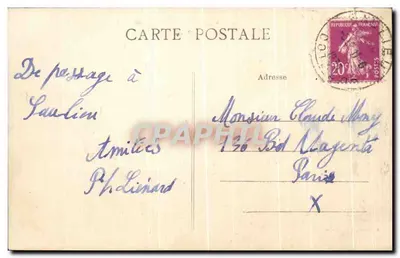 CARTE POSTALE
De passage à
Saulieu
Amitiés
Ph. Liénard
Adresse
Monsieur Claude May
136 Bd Magenta
Paris
X
REPUBLIQUE FRANCAISE
20c
POSTES
CARTPHILA